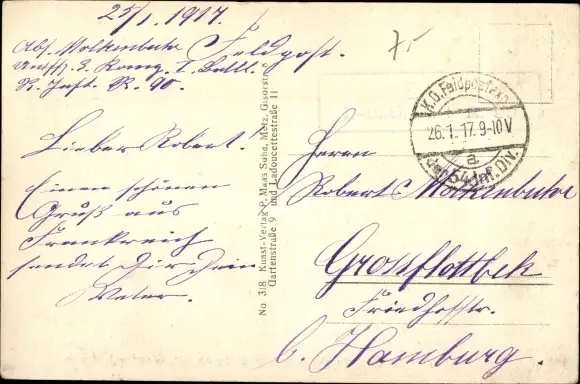 25/1. 1917.
Feldpost.
7,-
Abs. Molkenbuhr
Untffz. 3. Komp. I. Batl.
R. Inft. R. 90.
Lieber Robert!
Einen schönen
Gruß aus
Frankreich
sendet Dir Dein
Vater.
No 318 Kunst-Verlag P. Maas Sohn, Metz, Gisorstraße
Gartenstraße 9 und Ladoucettestraße 11
K.D. Feldpostexp.
26.1.17.9-10V
a
der 54. Inf. Div.
Herrn
Robert Molkenbuhr
Grossflottbek
Friedhofstr.
b. Hamburg.